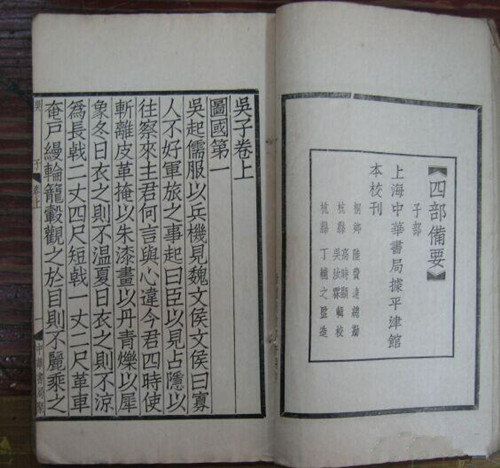 四部備要
子部
上海中華書局據平津館
本校刊
桐鄉 陸費逵總勘
杭縣 高時顯
吳汝霖輯校
杭縣 丁輔之監造
吳子卷上
圖國第一
吳起儒服以兵機見魏文侯文侯曰寡
人不好軍旅之事起曰臣以見占隱以
往察來主君何言與心違今君四時使
斬離皮革掩以朱漆畫以丹青爍以犀
象冬日衣之則不温夏日衣之則不涼
為長戟二丈四尺短戟一丈二尺革車
奄戸縵輪籠轂觀之於目則不麗乘之
子
卷上
一
中華書局聚